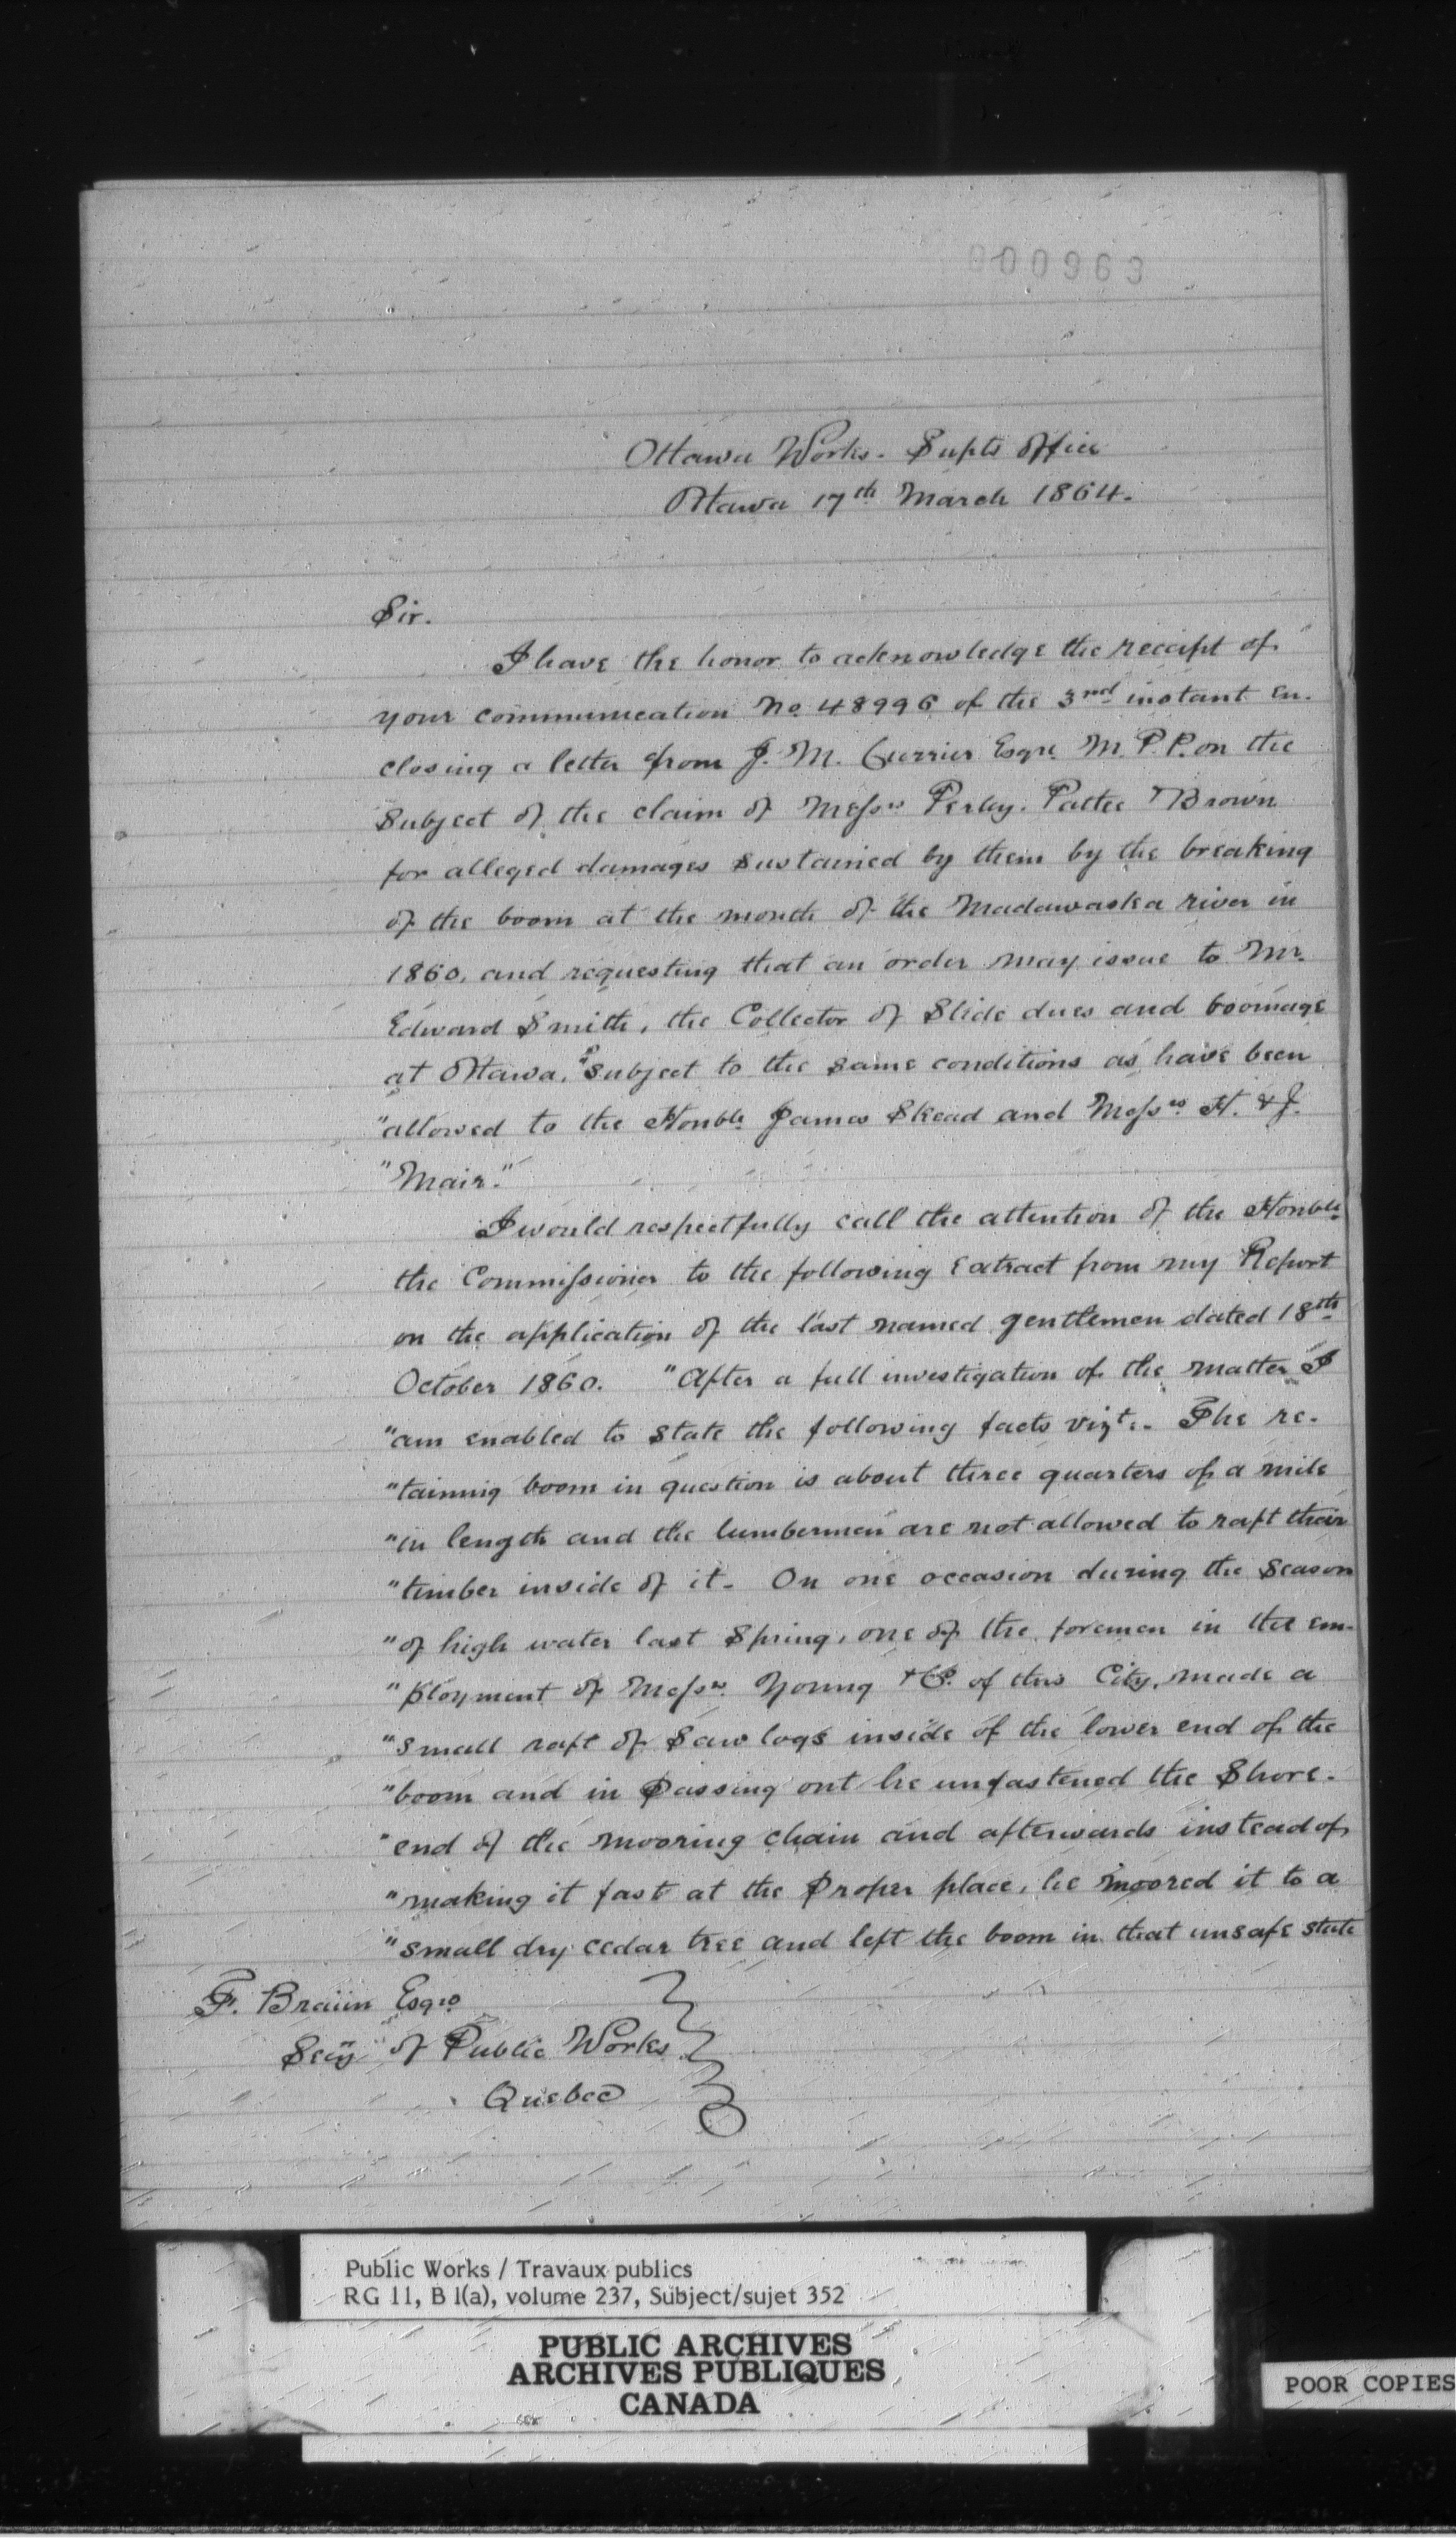 000963
Ottawa Works. Supts Office
Ottawa 17th March 1864.
Sir.
I have the honor to acknowledge the receipt of
your communication No 48996 of the 3rd instant en-
closing a letter from J. M. Currier Esqre M.P.P. on the
Subject of the claim of Messrs Perley. Pattee & Brown
for alleged damages sustained by them by the breaking
of the boom at the mouth of the Madawaska river in
1860, and requesting that an order may issue to Mr.
Edward Smith, the Collector of Slide dues and boomage
at Ottawa, "subject to the same conditions as have been
"allowed to the Honble James Skead and Messrs H. & J.
"Mair."
I would respectfully call the attention of the Honble
the Commissioner to the following extract from my Report
on the application of the last named gentlemen dated 18th
October 1860. "After a full investigation of the matter I
"am enabled to state the following facts vizt. The re-
"taining boom in question is about three quarters of a mile
"in length and the lumbermen are not allowed to raft their
"timber inside of it. On one occasion during the Season
"of high water last Spring, one of the foremen in the em-
"ployment of Messrs. Young & Co. of this City, made a
"small raft of Saw logs inside of the lower end of the
"boom and in passing out he unfastened the Shore-
"end of the mooring chain and afterwards instead of
"making it fast at the proper place, he moored it to a
"small dry cedar tree and left the boom in that unsafe state
F. Braun Esqre
Secy of Public Works
Quebec
Public Works / Travaux publics
RG 11, B 1(a), volume 237, Subject/sujet 352
PUBLIC ARCHIVES
ARCHIVES PUBLIQUES
CANADA
POOR COPIES